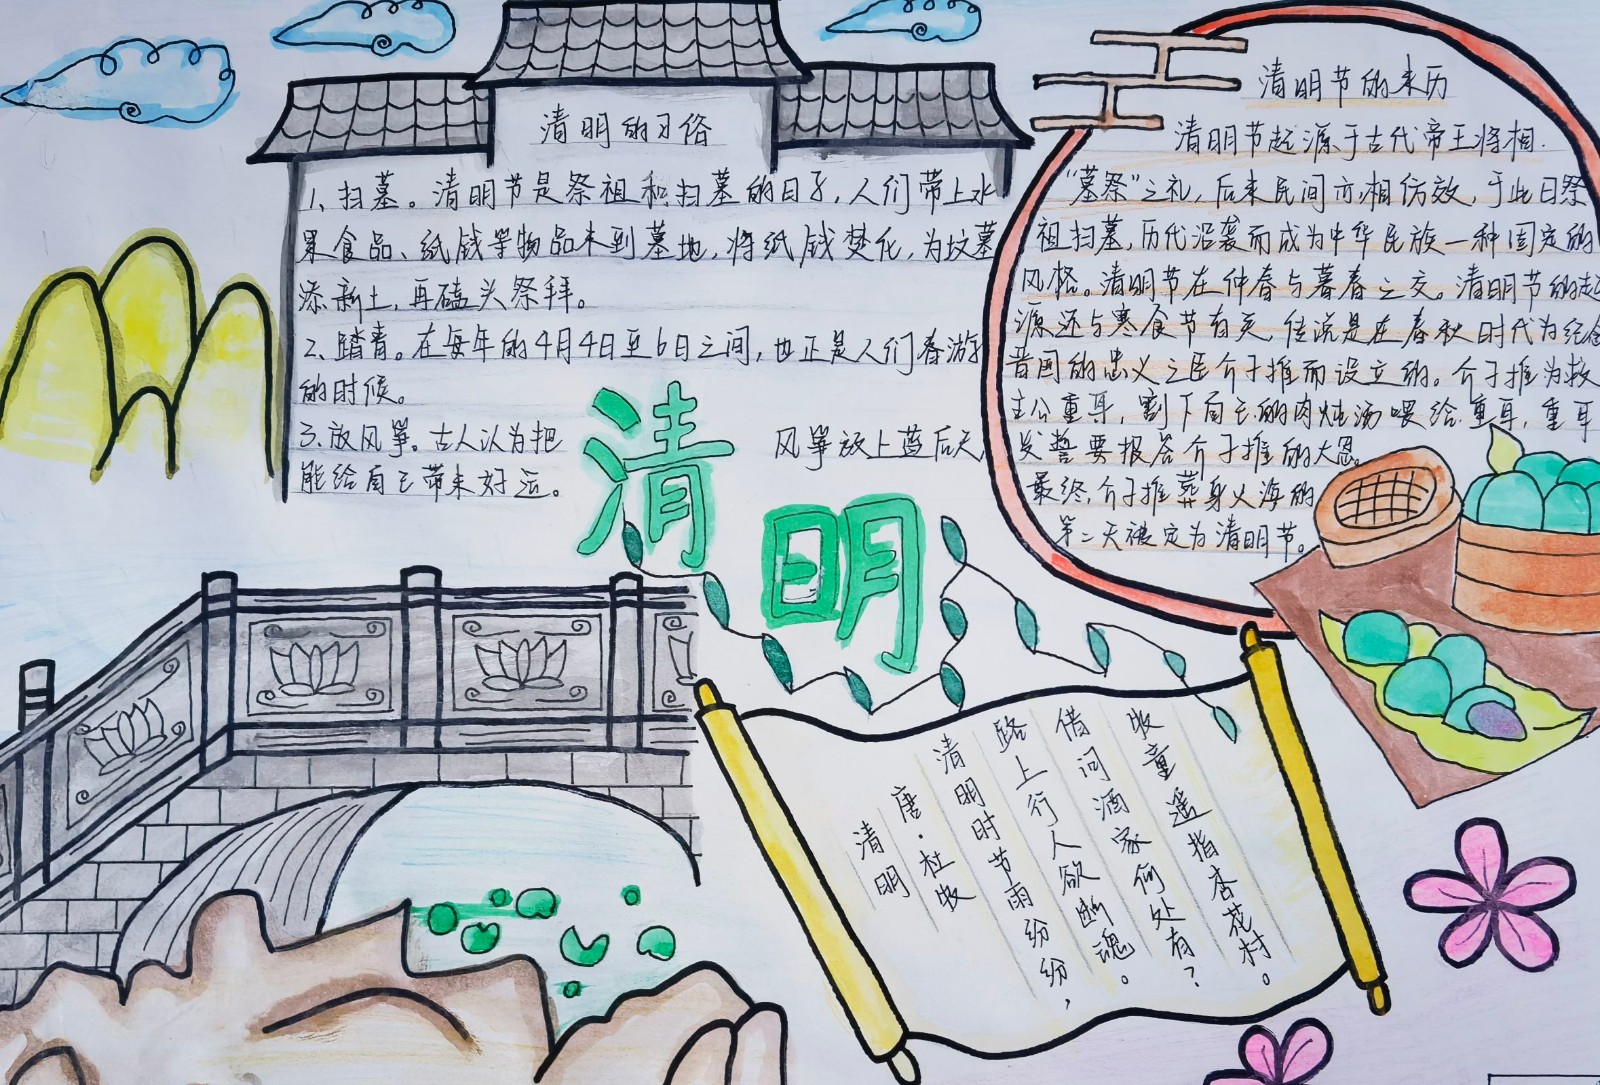 清明的习俗
1、扫墓。清明节是祭祖和扫墓的日子,人们带上水
果食品、纸钱等物品来到墓地,将纸钱焚化,为坟墓
添新土,再磕头祭拜。
2、踏青。在每年的4月4日至6日之间,也正是人们春游
的时候。
3、放风筝。古人认为把 风筝放上蓝后天,
能给自己带来好运。
清明
清明节的来历
清明节起源于古代帝王将相.
“墓祭”之礼,后来民间亦相仿效,于此日祭
祖扫墓,历代沿袭而成为中华民族一种固定的
风格。清明节在仲春与暮春之交。清明节的起
源还与寒食节有关,传说是在春秋时代为纪念
晋国的忠义之臣介子推而设立的。介子推为救
主公重耳,割下自己的肉炖汤喂给重耳,重耳
发誓要报答介子推的大恩。
最终,介子推葬身火海的
第二天被定为清明节。
清明
唐·杜牧
清明时节雨纷纷,
路上行人欲断魂。
借问酒家何处有?
牧童遥指杏花村。